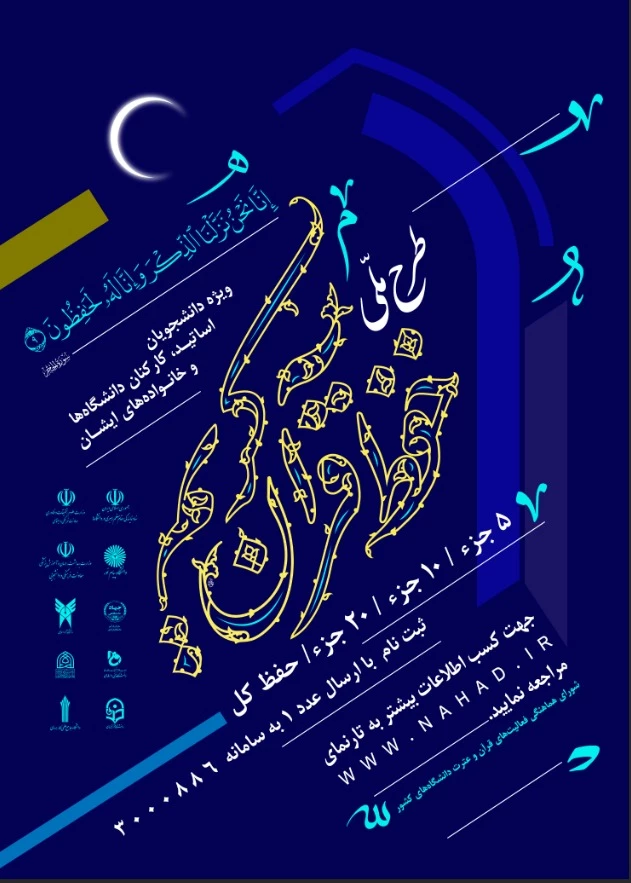 إِنَّا نَحْنُ نَزَّلْنَا ٱلذِّكْرَ وَإِنَّا لَهُۥ لَحَٰفِظُونَ ٩
طرح ملّی
حفظ قرآن کریم
ویژه دانشجویان
اساتید، کارکنان دانشگاه‌ها
و خانواده‌های ایشان
۵ جزء / ۱۰ جزء / ۲۰ جزء / حفظ کل
ثبت نام با ارسال عدد ۱ به سامانه ۳۰۰۰۰۸۸۶
جهت کسب اطلاعات بیشتر به تارنمای
WWW.NAHAD.IR
مراجعه نمایید.
شورای هماهنگی فعالیت‌های قرآن و عترت دانشگاه‌های کشور